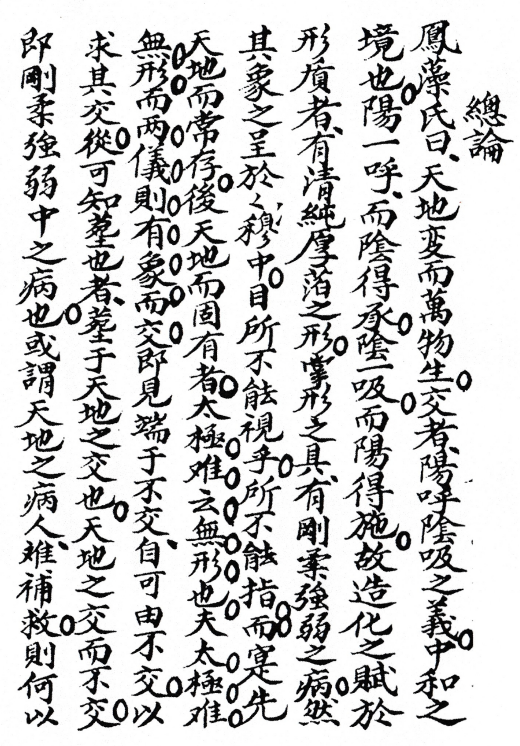 總論
鳳藻氏曰、天地変而萬物生。交者、陽呼陰吸之義。中和之
境也。陽一呼、而陰得承。陰一吸而陽得施。故造化之賦於
形質者、有清純厚萡之形。掌形之具、有剛柔強弱之病。然
其象之呈於く穆中。目所不能視乎。所不能指而寔先
天地而常存。後天地而固有者。太極难云無形也。夫太極难
無形而两儀則有象而交即見端于不交、自可由不交。以
求其交。從可知塟也者、塟于天地之交也。天地之交而不交。
即剛柔強弱中之病也。或謂天地之病人、难補救。則何以